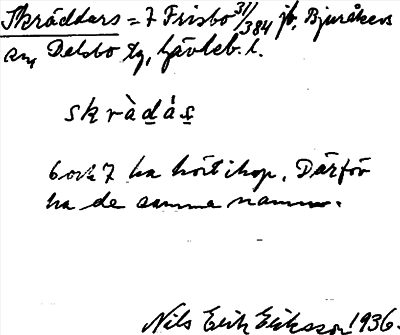 Skräddars = 7 Frisbo 31/384 jb, Bjuråkers
sn, Delsbo tg, Gävleb. l.
skràdás
6 och 7 ha hört ihop. Därför
ha de samma namn.
Nils Erik Eriksson 1936.